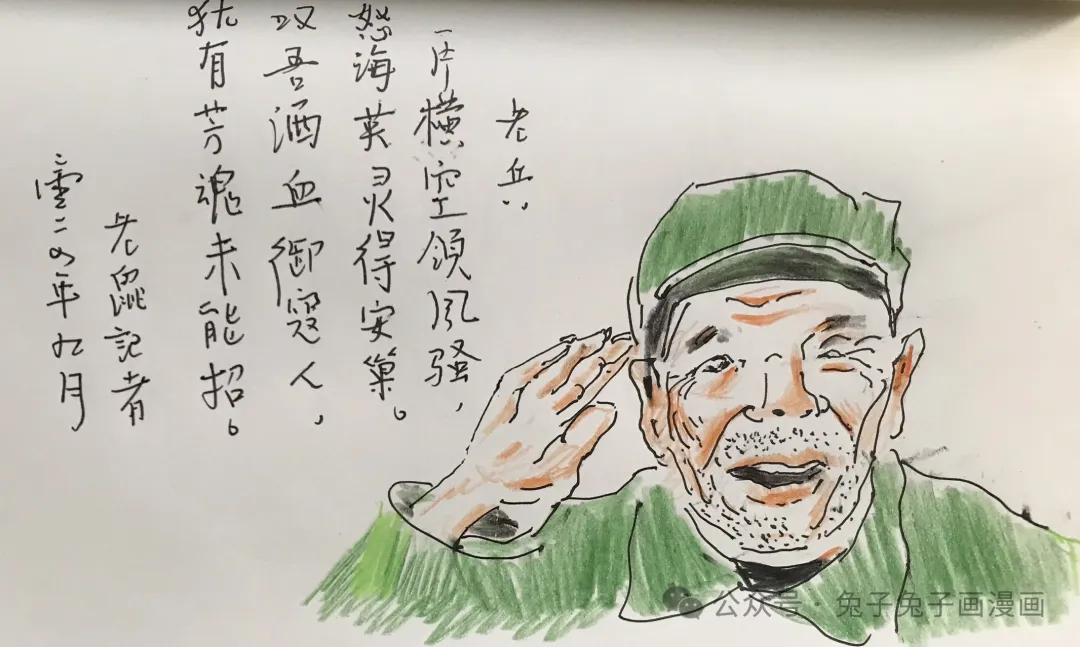 老兵
一片橫空領风骚，
怒海英灵得安巢。
吾洒血御寇人，
犹有芳魂未能招。
老鼠記者
二零二四年九月
公众号 · 兔子兔子画漫画